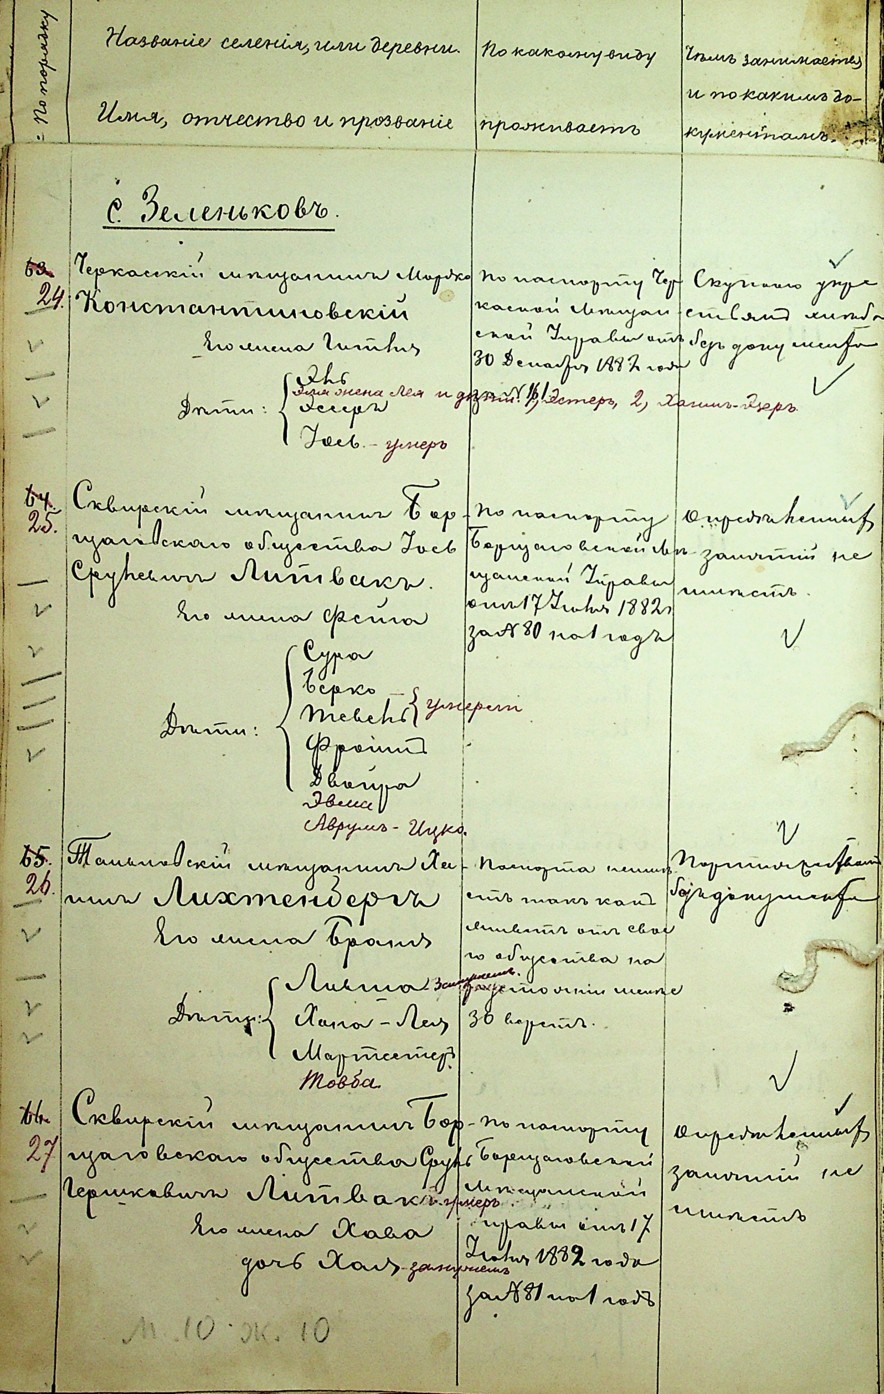 По порядку
Названіе селенія, или деревни.
Имя, отчество и прозваніе
По какому виду
проживаетъ
Чѣмъ занимается
и по какимъ до-
кументамъ.
с. Зеленьковъ.
63.
24.
Черкасскій мѣщанинъ Мордко
Константиновскій
Его жена Гитля
Дѣти:
Эль
Эля жена Лея и дѣти: 1, Эстеръ, 2, Хаимъ-
Эстеръ
Іосъ - умеръ
По паспорту Чер-
каской Мѣщан-
ской Управы отъ
30 Декабря 1882 года
Скупкою
хлѣба
безъ документа
64.
25.
Сквирскій мѣщанинъ Бор-
щаговскаго общества Іось
Срулевичъ Литвакъ.
Его жена Фейга
Дѣти:
Сура
Берко
Тевель
умерли
Фроимъ
Двойра
Аврумъ-Ицко.
по паспорту
Борщаговской Мѣ-
щанской Управы
отъ 17 Іюня 1882 г
за № 80 на 1 годъ
опредѣленныхъ
занятій не
имѣетъ.
65.
26.
Тальновскій мѣщанинъ Ха-
имъ Лихтенбергъ
Его жена Браня
Дѣти:
Хана-Лея
Товба
Паспорта неимѣ-
етъ такъ какъ
живетъ отъ свое
го общества на
разстояніи менѣе
30 верстъ.
безъ документа
66.
27
Сквирскій мѣщанинъ Бор-
щаговскаго общества Сруль
Гершковичъ Литвакъ умеръ
Его жена Хава
дочь Хая - замужемъ
по паспорту
Борщаговской
мѣщанской
управы отъ 17
Іюня 1882 года
за № 81 на 1 годъ
опредѣленныхъ
занятій не
имѣетъ
М. 10 - Ж. 10